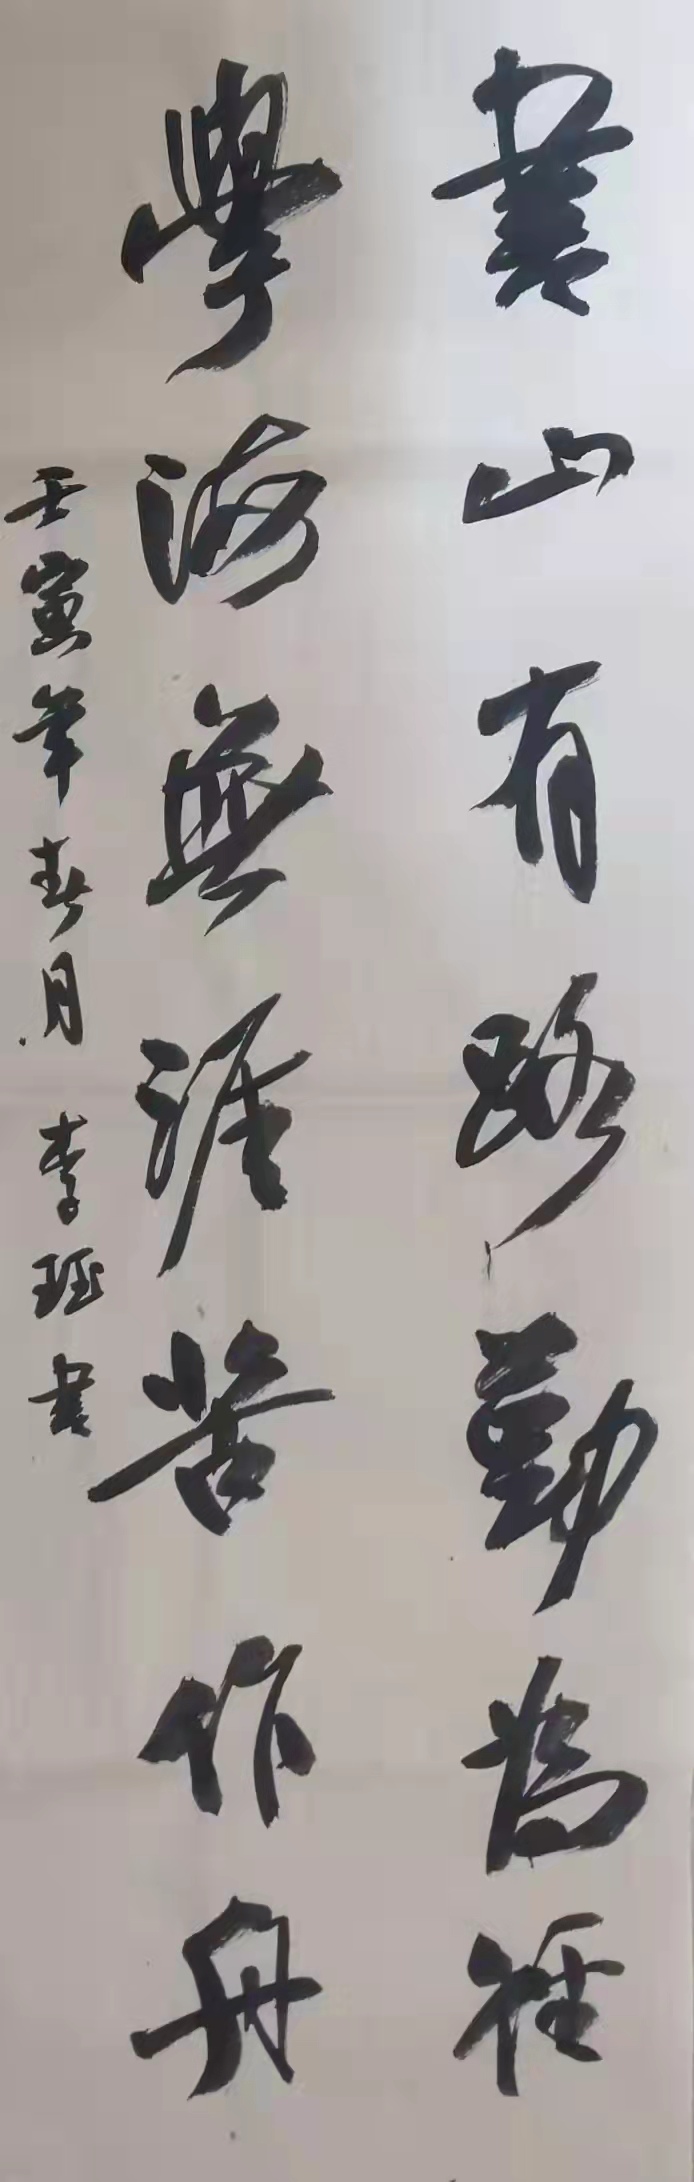 書山有路勤為徑
學海無涯苦作舟
壬寅年春月 李珏書